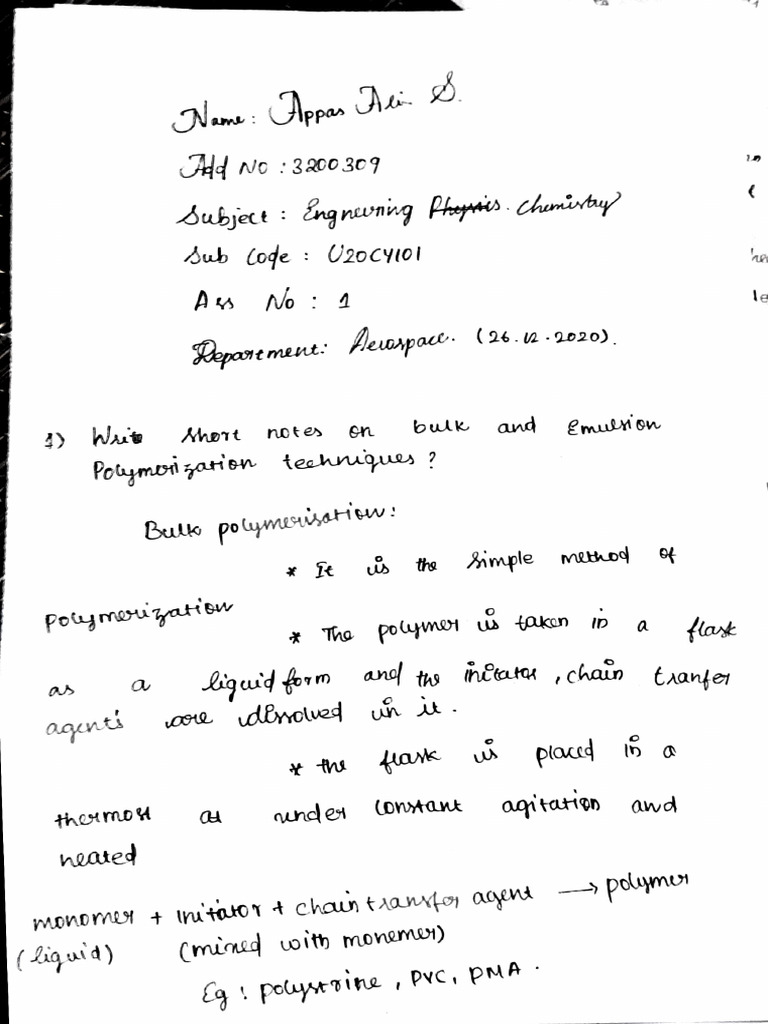 Name: Appas Ali S.
Add No : 3200309
Subject : Engneuring Physis. Chemistry
Sub Code : U20CY101
Ass No : 1
Department: Aerospace. (26.12.2020).
1) Write short notes on bulk and Emulsion
Polymerization techniques ?
Bulk polymerisation:
* It is the simple method of
polymerization
* The polymer is taken in a flask
as a liquid form and the initator, chain tranfer
agents are dissolved in it.
* the flask is placed in a
thermost at under constant agitation and
heated
monomer + initator + chain transfer agent → polymer
(liquid) (mixed with monemer)
Eg : polystrine, PVC, PMA.